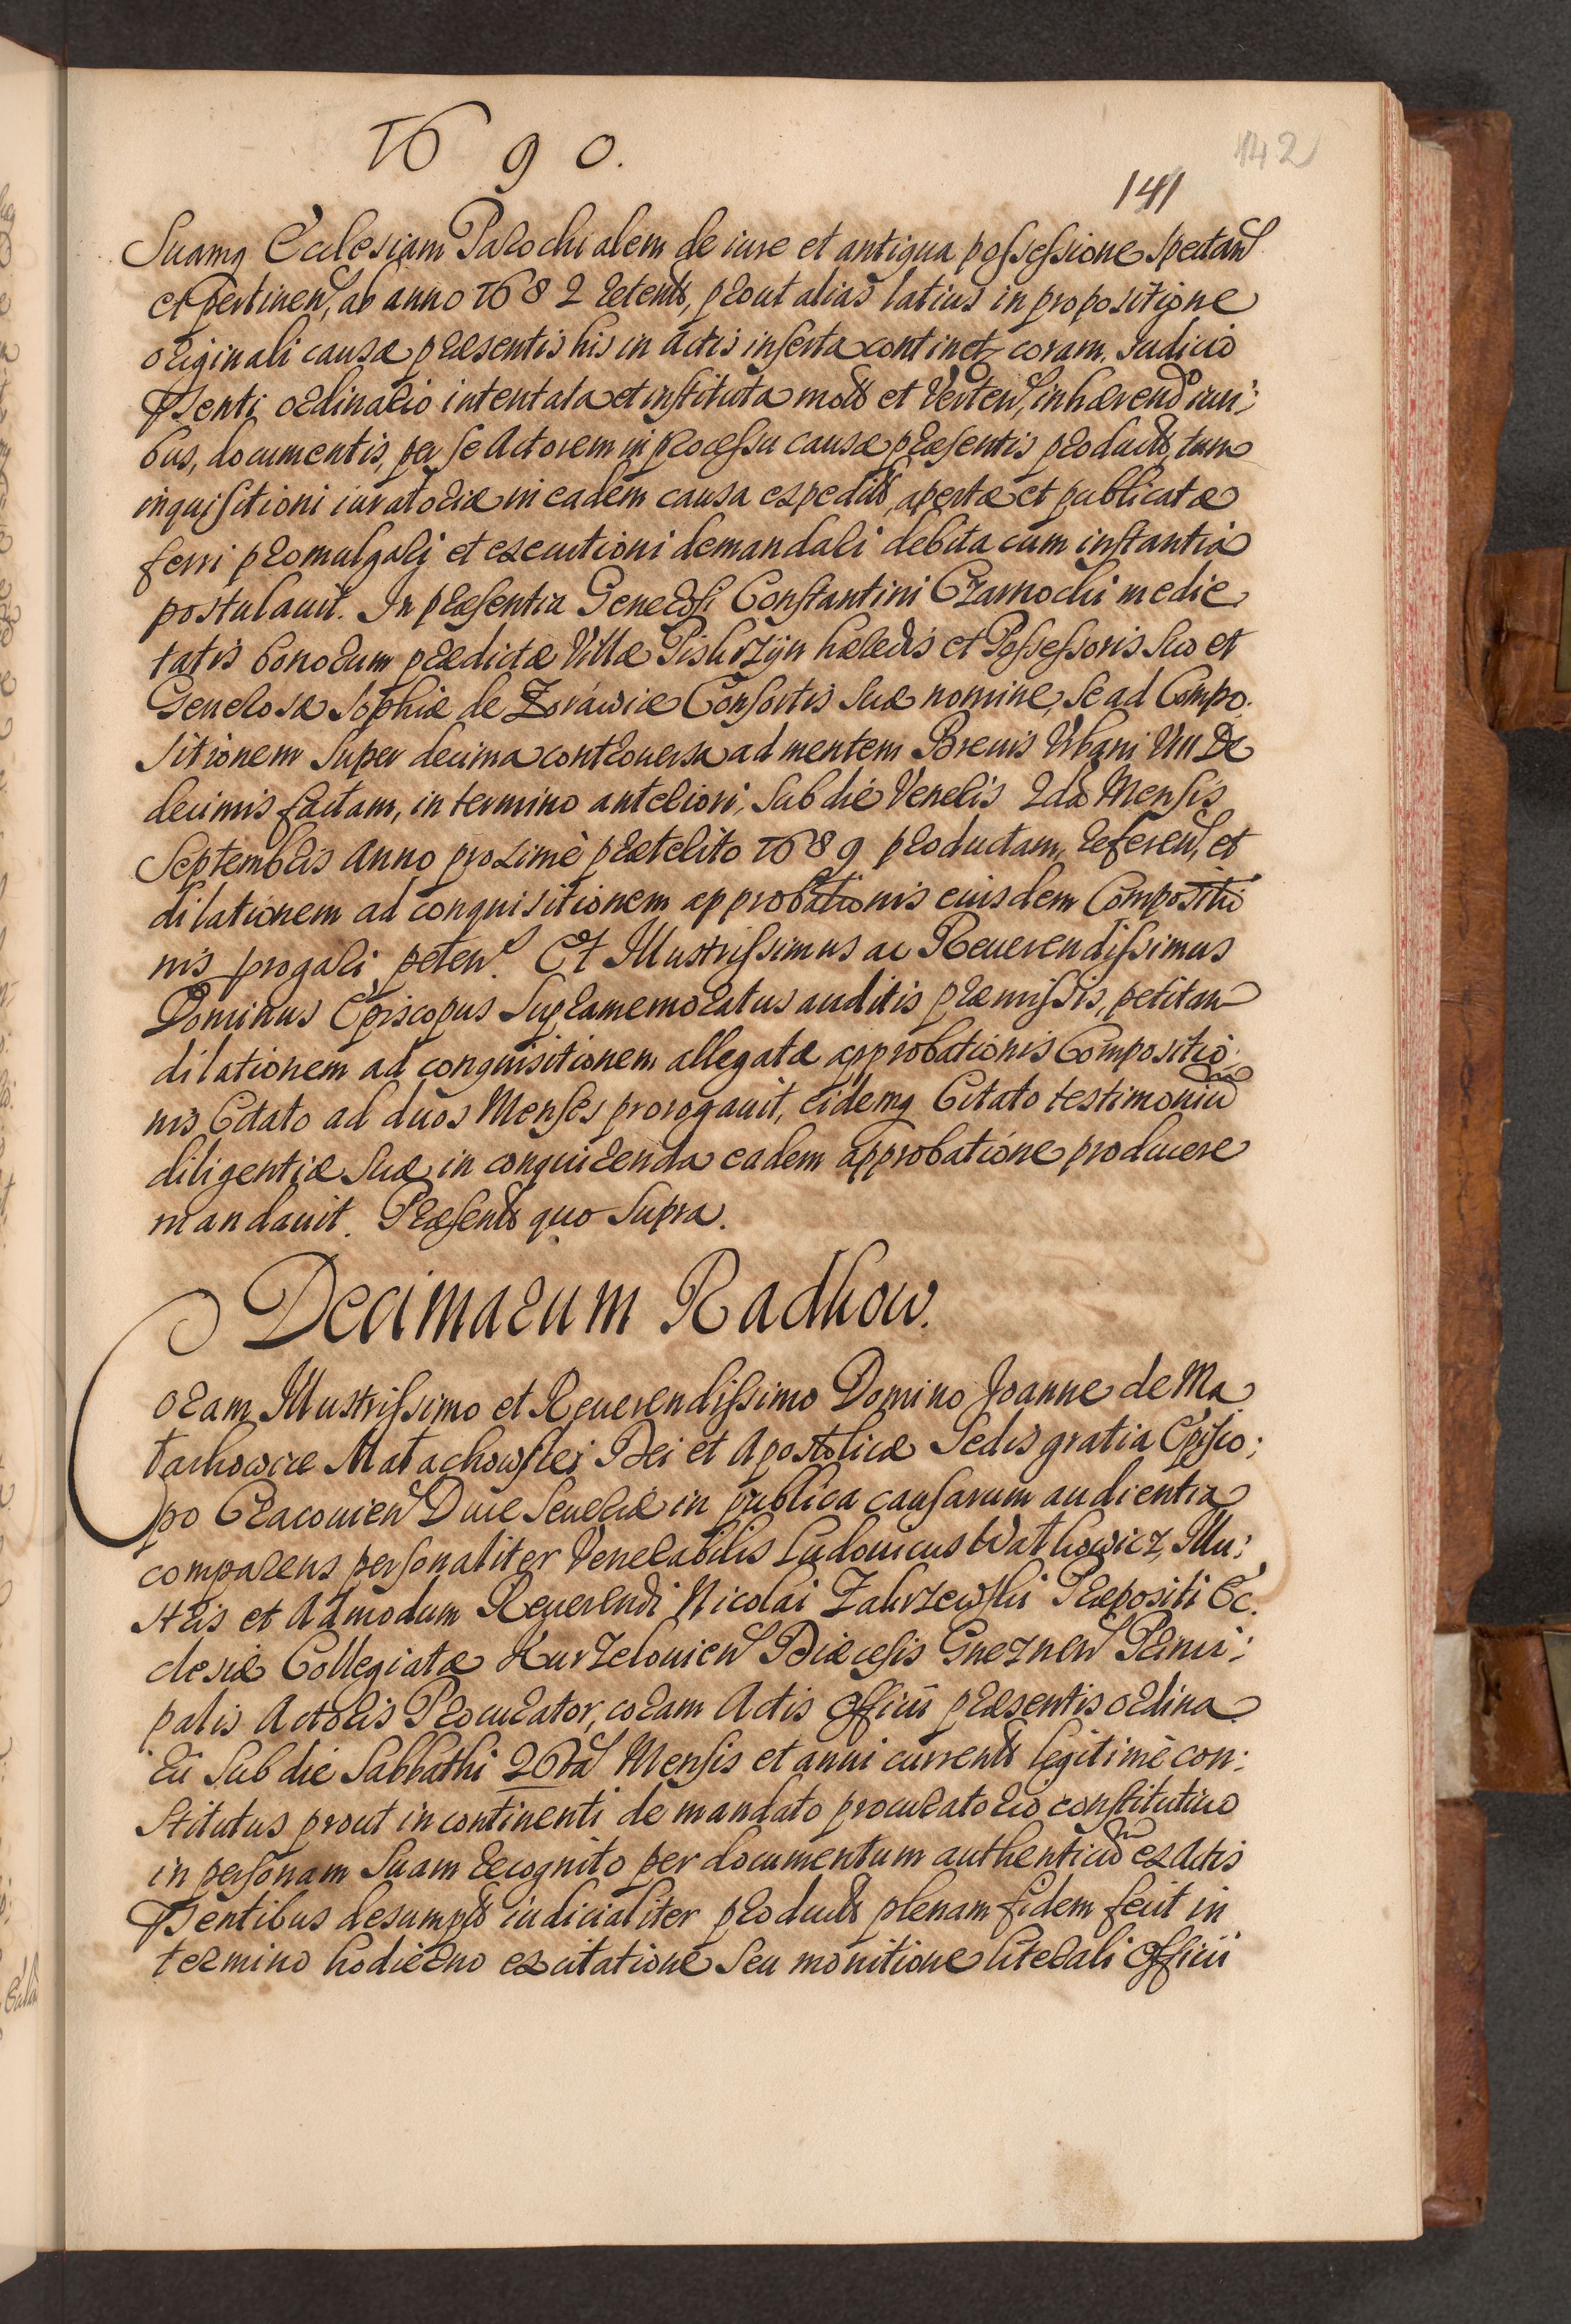 1690.
142
141
Suamq Ecclesiam Parochialem de iure et antiqua possessione spectan
et pertinen, ab anno 1682 retent, prout alias latius in propositione
originali causæ præsentis his in Actis inserta continetz coram Iudicio
Psenti ordinario intentata et instituta mot et Verten, inhærend iuri;
bus, documentis, per se Actorem in processu causæ præsentis product, tum
inquisitioni iuratoriæ in eadem causa expedit, apertæ et publicatæ
ferri promulgarj et executioni demandari debita cum instantia
postulauit. In præsentia Generosi Constantini Czarnochi medie
tatis bonorum prædictæ Villæ Piskrzÿn hæredis et Possessoris suo et
Generosæ Sophiæ de Zoráwice Consortis suæ nomine, se ad Compo.
sitionem super decima controuersa ad mentem Breuis Urbani VIII De
decimis factam, in termino anteriori, sub die Veneris 2da Mensis
Septembris anno proximè præterito 1689 productam, referen, et
dilationem ad conquisitionem approbationis eiusdem Compositio
nis progari peten. Et Illustrissimus ac Reuerendissimus
Dominus Episcopus supramemoratus auditis præmissis, petitam
dilationem ad conquisitionem allegatæ approbationis Compositio;
nis Citato ad duos Menses prorogauit, eidemq Citato testimoniũ
diligentiæ suæ in conquirenda eadem approbatione producere
mandauit. Præsent quo supra.
Decimarum Radkow.
Coram Illustrissimo et Reuerendissimo Domino Joanne de Ma
łachowice Małachowskj Dei et Apostolicæ Sedis gratia Episco;
po Cracouien Duce Seueriæ in publica causarum audientia
comparens personaliter Venerabilis Ludouicus Wałkowicz, Illu;
stris et Admodum Reuerendi Nicolai Zakrzewski Præpositi Ec.
clesiæ Collegiatæ Kurzelouien Diæcesis Gneznen Princi;
palis Actoris Procurator, coram Actis Officii præsentis ordina
rii sub die Sabbathi 26ta Mensis et anni current legitimè con:
stitutus prout in continenti de mandato procuratorio constitutiuo
in personam suam recognito per documentum authenticũ ex Actis
Psentibus desumpt iudicialiter product plenam fidem fecit in
termino hodierno ex citatione seu monitione literali Officii